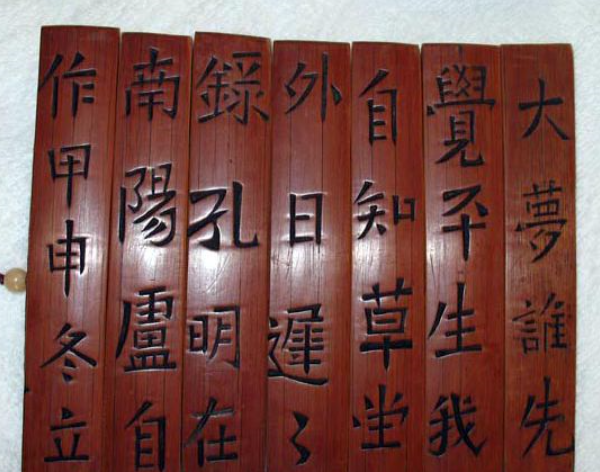 大夢誰先
覺平生我
自知草堂
外日遲〻
錄孔明在
南陽盧自
作甲申冬立